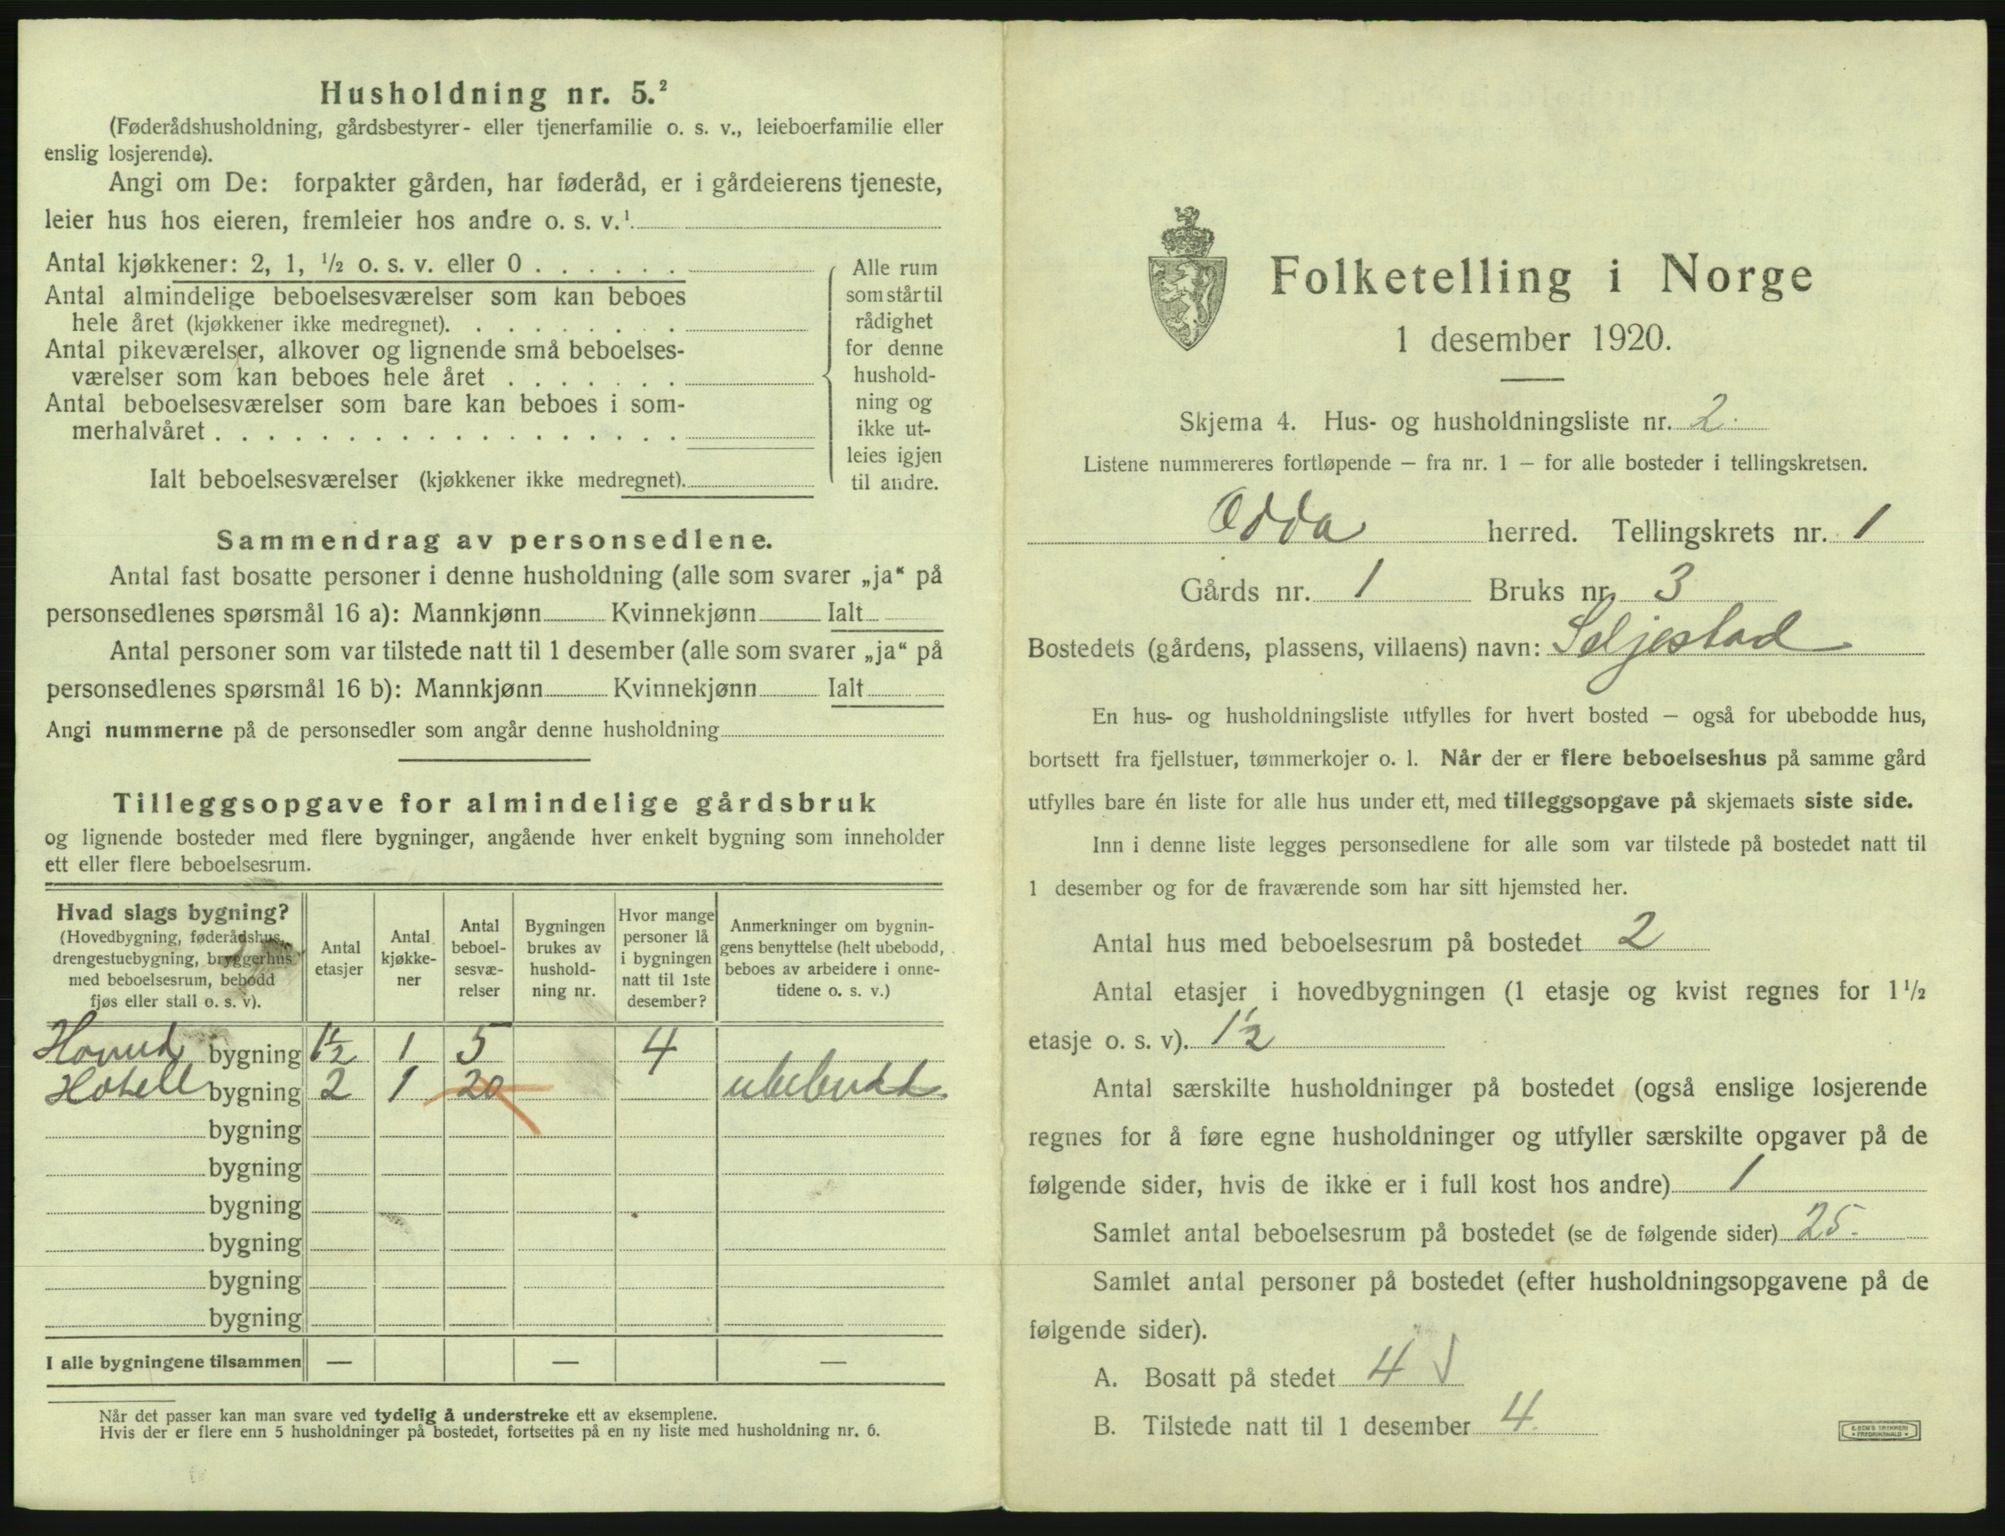 Husholdning nr. 5.²
(Føderådshusholdning, gårdsbestyrer- eller tjenerfamilie o. s. v., leieboerfamilie eller
enslig losjerende).
Angi om De: forpakter gården, har føderåd, er i gårdeierens tjeneste,
leier hus hos eieren, fremleier hos andre o. s. v.¹
Antal kjøkkener: 2, 1, ½ o. s. v. eller 0 . . . . . .
Antal almindelige beboelsesværelser som kan beboes
hele året (kjøkkener ikke medregnet). . . . . . . . .
Antal pikeværelser, alkover og lignende små beboelses-
værelser som kan beboes hele året . . . . . . .
Antal beboelsesværelser som bare kan beboes i som-
merhalvåret . . . . . . . . . . . . . . . . . .
Ialt beboelsesværelser (kjøkkener ikke medregnet).
Alle rum
som står til
rådighet
for denne
hushold-
ning og
ikke ut-
leies igjen
til andre.
Sammendrag av personsedlene.
Antal fast bosatte personer i denne husholdning (alle som svarer „ja“ på
personsedlenes spørsmål 16 a): Mannkjønn Kvinnekjønn Ialt
Antal personer som var tilstede natt til 1 desember (alle som svarer „ja“ på
personsedlenes spørsmål 16 b): Mannkjønn Kvinnekjønn Ialt
Angi nummerne på de personsedler som angår denne husholdning
Tilleggsopgave for almindelige gårdsbruk
og lignende bosteder med flere bygninger, angående hver enkelt bygning som inneholder
ett eller flere beboelsesrum.
Hvad slags bygning?
(Hovedbygning, føderådshus,
drengestuebygning, bryggerhus
med beboelsesrum, bebodd
fjøs eller stall o. s. v).
Antal
etasjer
Antal
kjøkke-
ner
Antal
beboel-
sesvæ-
relser
Bygningen
brukes av
hushold-
ning nr.
Hvor mange
personer lå
i bygningen
natt til 1ste
desember?
Anmerkninger om bygnin-
gens benyttelse (helt ubebodd,
beboes av arbeidere i onne-
tidene o. s. v.)
Hovud bygning 1½ 1 5 4
Hotell bygning 2 1 20 ubebudd
bygning
bygning
bygning
bygning
bygning
bygning
I alle bygningene tilsammen — — —
Når det passer kan man svare ved tydelig å understreke ett av eksemplene.
Hvis der er flere enn 5 husholdninger på bostedet, fortsettes på en ny liste med husholdning nr. 6.
Folketelling i Norge
1 desember 1920.
Skjema 4. Hus- og husholdningsliste nr. 2.
Listene nummereres fortløpende — fra nr. 1 — for alle bosteder i tellingskretsen.
Odda herred. Tellingskrets nr. 1
Gårds nr. 1 Bruks nr. 3
Bostedets (gårdens, plassens, villaens) navn: Seljestad
En hus- og husholdningsliste utfylles for hvert bosted — også for ubebodde hus,
bortsett fra fjellstuer, tømmerkojer o. l. Når der er flere beboelseshus på samme gård
utfylles bare én liste for alle hus under ett, med tilleggsopgave på skjemaets siste side.
Inn i denne liste legges personsedlene for alle som var tilstede på bostedet natt til
1 desember og for de fraværende som har sitt hjemsted her.
Antal hus med beboelsesrum på bostedet 2
Antal etasjer i hovedbygningen (1 etasje og kvist regnes for 1½
etasje o. s. v). 1½
Antal særskilte husholdninger på bostedet (også enslige losjerende
regnes for å føre egne husholdninger og utfyller særskilte opgaver på de
følgende sider, hvis de ikke er i full kost hos andre) 1
Samlet antal beboelsesrum på bostedet (se de følgende sider) 25.
Samlet antal personer på bostedet (efter husholdningsopgavene på de
følgende sider).
A. Bosatt på stedet 4 √
B. Tilstede natt til 1 desember 4.